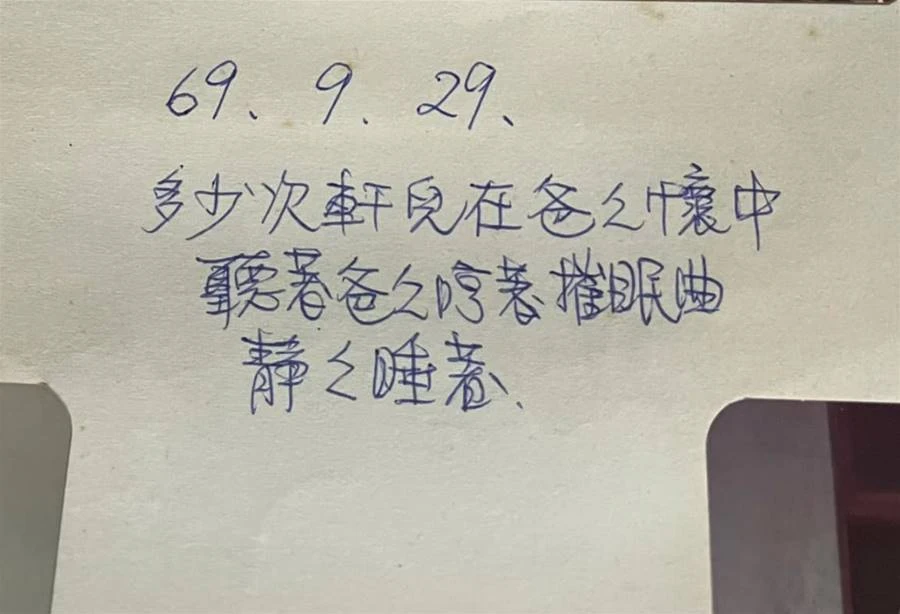 69、9、29、
多少次軒兒在爸々懷中
聽著爸々哼著催眠曲
靜々睡著、